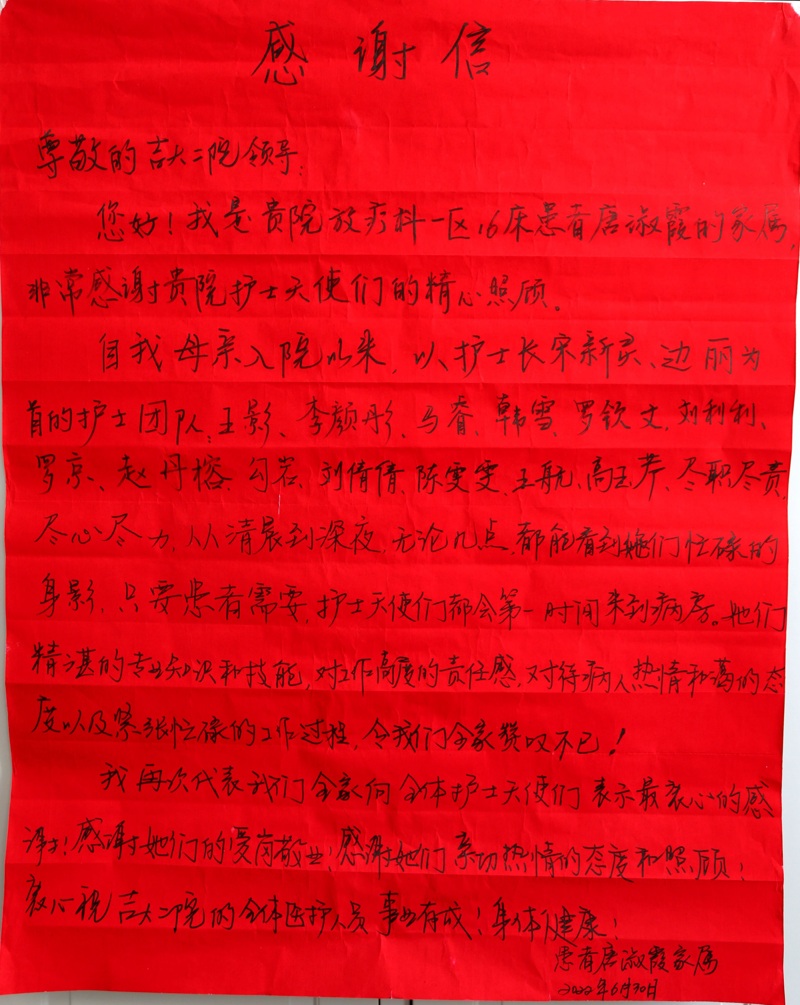 感谢信
尊敬的吉大二院领导:
您好!我是贵院放疗科一区16床患者唐淑霞的家属,
非常感谢贵院护士天使们的精心照顾。
自我母亲入院以来,以护士长宋新灵、边丽为
首的护士团队:王影、李颜彤、马睿、韩雪、罗钦文、刘利利、
罗京、赵丹榕、勾岩、刘倩倩、陈雯雯、王航、高玉芹、尽职尽责,
尽心尽力,从清晨到深夜,无论几点,都能看到她们忙碌的
身影,只要患者需要,护士天使们都会第一时间来到病房。她们
精湛的专业知识和技能,对工作高度的责任感,对待病人热情和蔼的态
度以及紧张忙碌的工作过程,令我们全家赞叹不已!
我再次代表我们全家向全体护士天使们表示最衷心的感
谢!感谢她们的爱岗敬业!感谢她们亲切热情的态度和照顾!
衷心祝吉大二院的全体医护人员事业有成!身体健康!
患者唐淑霞家属
2022年6月30日